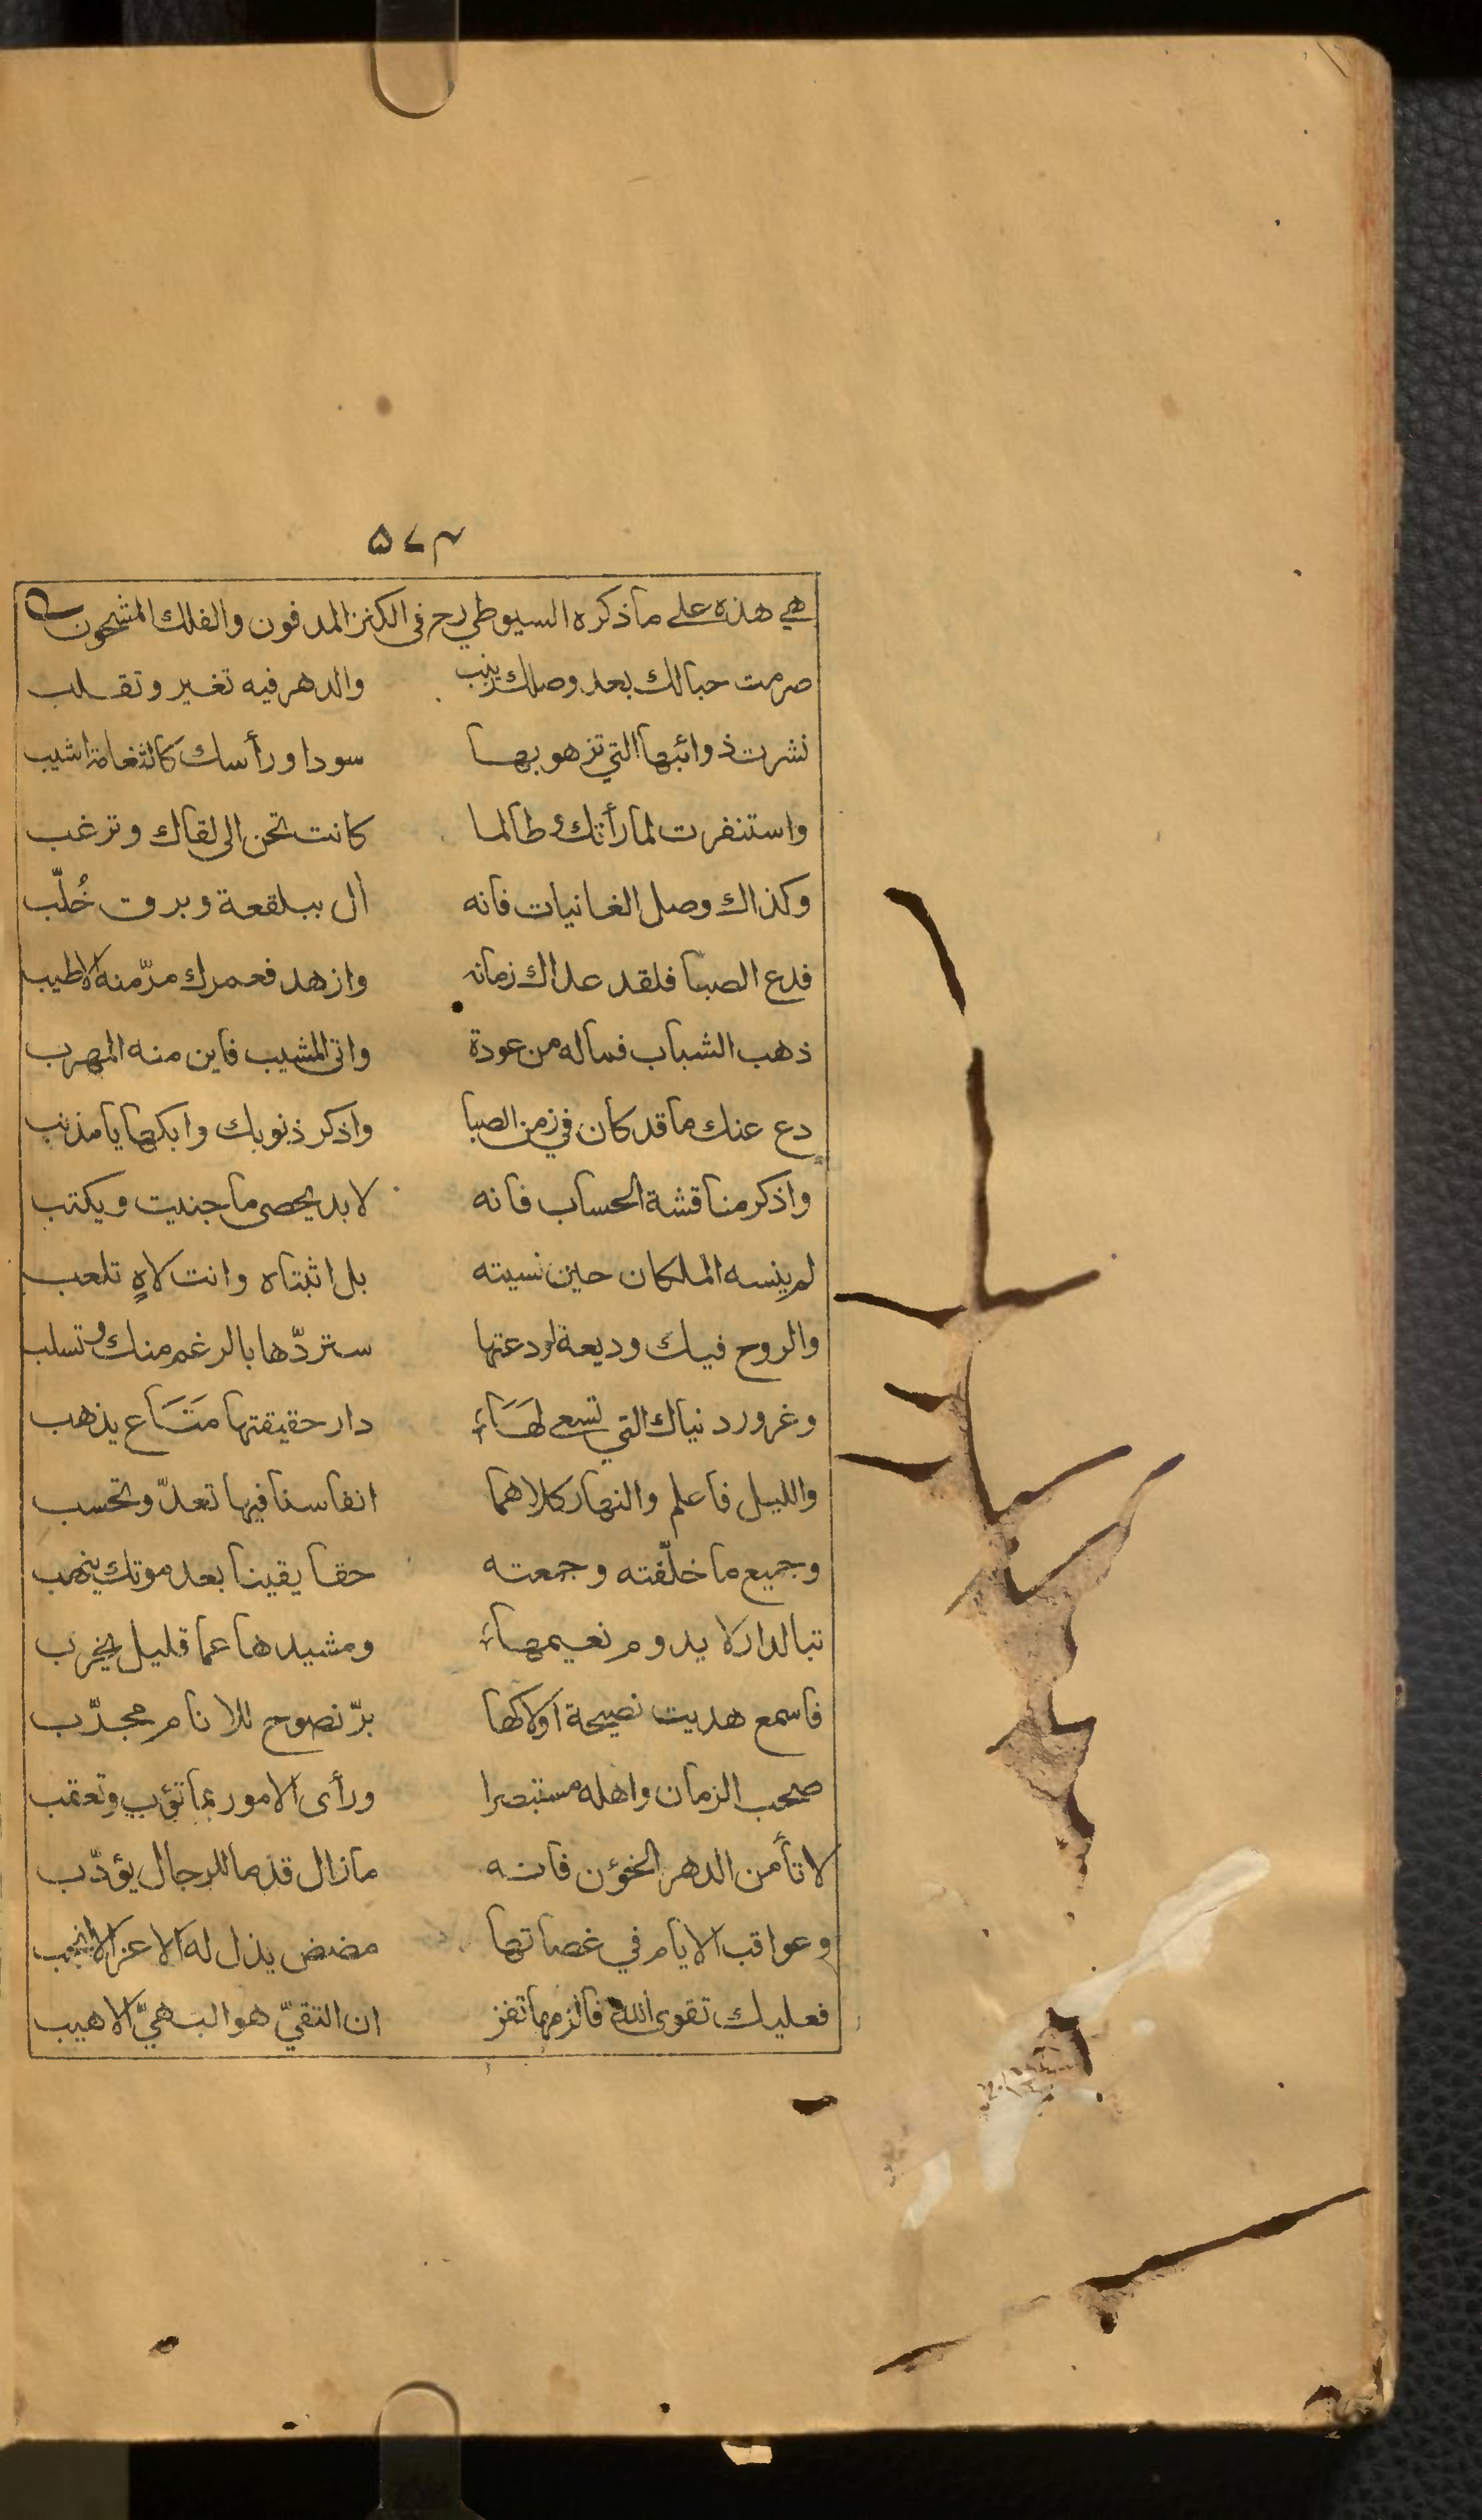 ۵۷۳
هي هذه على ما ذكره السيوطي رح في الكنز المدفون والفلك المشحون
صرمت حبالك بعد وصلك زينب والدهر فيه تغير وتقلب
نشرت ذوائبها التي تزهو بها سودا ورأسك كالثغامة اشيب
واستنفرت لما رأتك وطالما كانت تحن الى لقاك وترغب
وكذاك وصل الغانيات فانه أل ببلقعة وبرق خُلّب
فدع الصبا فلقد عداك زمانه وازهد فعمرك مرّ منه الاطيب
ذهب الشباب فماله من عودة واتى المشيب فاين منه المهرب
دع عنك ما قد كان في زمن الصبا واذكر ذنوبك وابكها يا مذنب
واذكر مناقشة الحساب فانه لابد يحصى ما جنيت ويكتب
لم ينسه الملكان حين نسيته بل اثبتاه وانت لاهٍ تلعب
والروح فيك وديعة اودعتها ستردّها بالرغم منك وتسلب
وغرور دنياك التي تسعى لها دار حقيقتها مَتَاع يذهب
والليل فاعلم والنهار كلاهما انفاسنا فيها تعدّ وتحسب
وجميع ما خلّفته وجمعته حقا يقينا بعد موتك ينهب
تبا لدار لا يدوم نعيمها ومشيدها عما قليل يخرب
فاسمع هديت نصيحة اولاكها برّ نصوح للانام مجدّب
صحب الزمان واهله مستبصرا ورأى الامور بما تؤب وتعقب
لا تأمن الدهر الخؤن فانه مازال قدما للرجال يؤدّب
وعواقب الايام في غصاتها مضض يذل له الاعز الانجب
فعليك تقوى الله فالزمها تفز ان التقيّ هو البهيّ الاهيب